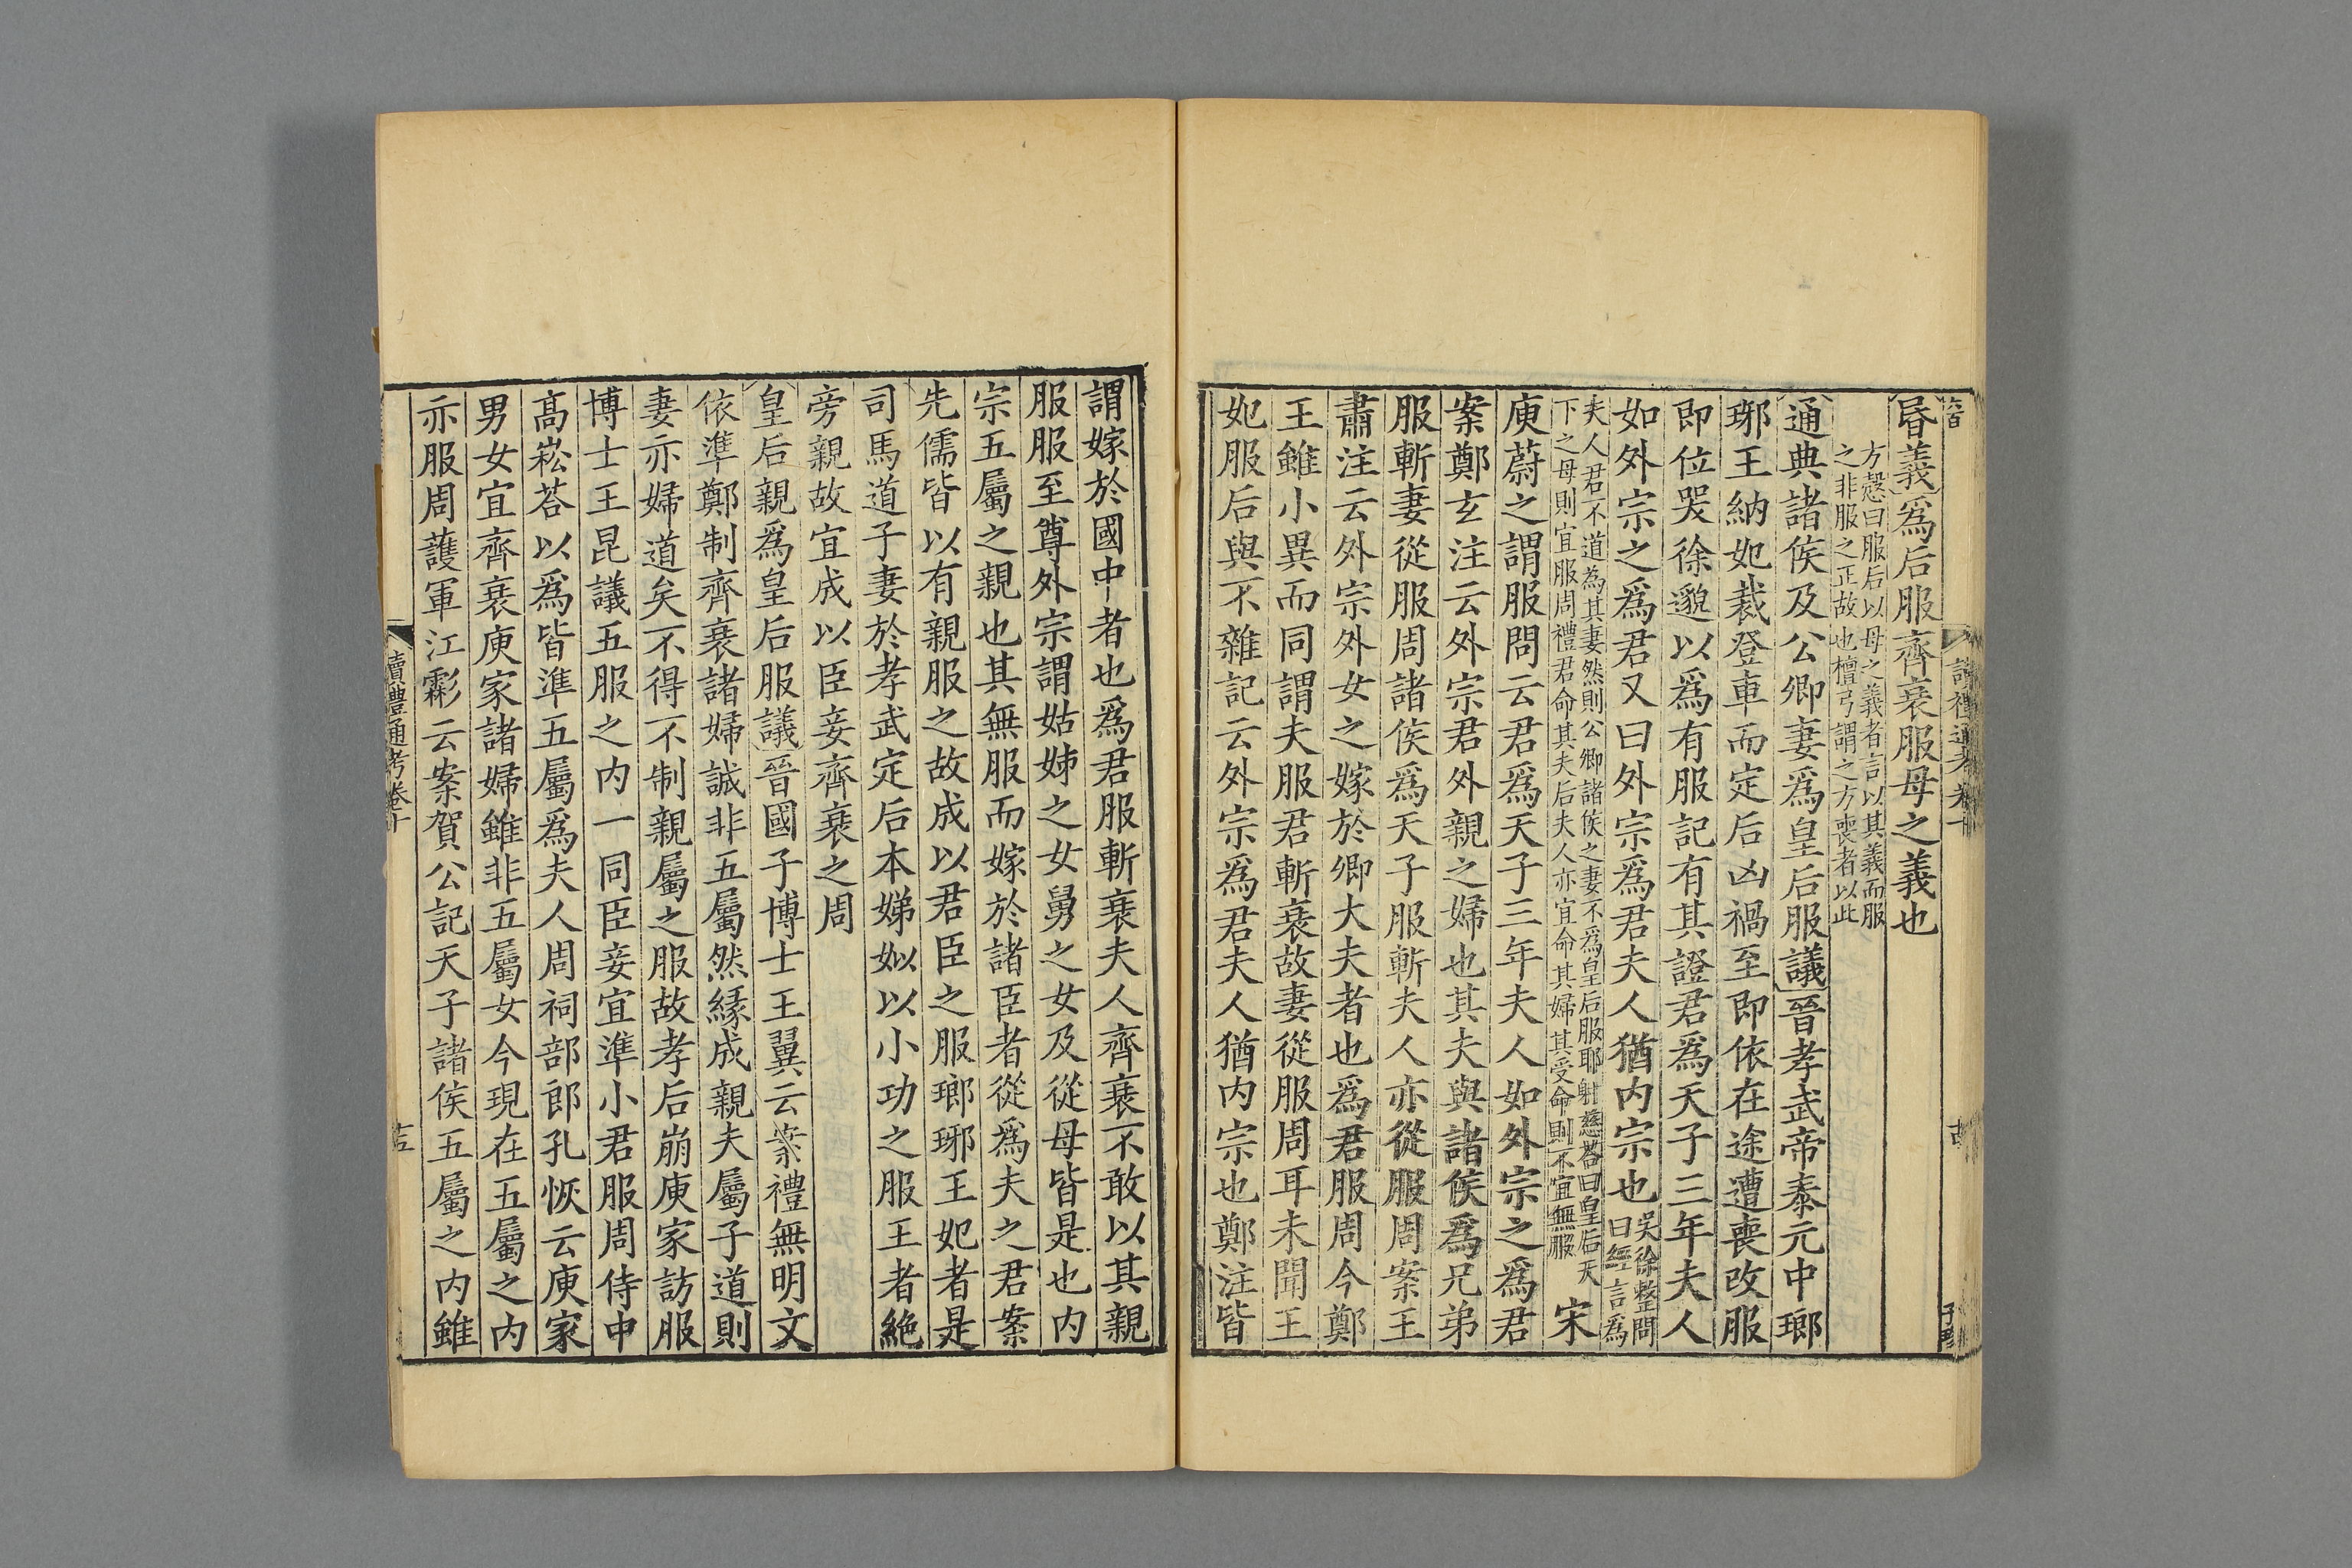 昬義爲后服齊衰服母之義也
方慤曰服后以母之義者言以其義而服
之非服之正故也檀弓謂之方喪者以此
通典諸侯及公卿妻爲皇后服議晉孝武帝泰元中瑯
琊王納妃裁登車而定后凶禍至即依在途遭喪改服
即位哭徐邈以爲有服記有其證君爲天子三年夫人
如外宗之爲君又曰外宗爲君夫人猶内宗也
吴徐整問
曰經言爲
夫人君不道為其妻然則公卿諸侯之妻不為皇后服耶射慈荅曰皇后天
下之母則宜服周禮君命其夫后夫人亦宜命其婦其受命則不宜無服
宋
庾蔚之謂服問云君爲天子三年夫人如外宗之爲君
案鄭玄注云外宗君外親之婦也其夫與諸侯爲兄弟
服斬妻從服周諸侯爲天子服斬夫人亦從服周案王
肅注云外宗外女之嫁於卿大夫者也爲君服周今鄭
王雖小異而同謂夫服君斬衰故妻從服周耳未聞王
妃服后與不雜記云外宗爲君夫人猶内宗也鄭注皆
謂嫁於國中者也爲君服斬衰夫人齊衰不敢以其親
服服至尊外宗謂姑姊之女舅之女及從母皆是也内
宗五屬之親也其無服而嫁於諸臣者從爲夫之君案
先儒皆以有親服之故成以君臣之服瑯琊王妃者是
司馬道子妻於孝武定后本娣姒以小功之服王者絶
旁親故宜成以臣妾齊衰之周
皇后親爲皇后服議晉國子博士王翼云案禮無明文
依準鄭制齊衰諸婦誠非五屬然緣成親夫屬子道則
妻亦婦道矣不得不制親屬之服故孝后崩庾家訪服
博士王昆議五服之内一同臣妾宜準小君服周侍中
高崧荅以爲皆準五屬爲夫人周祠部郎孔恢云庾家
男女宜齊衰庾家諸婦雖非五屬女今現在五屬之内
亦服周護軍江虨云案賀公記天子諸侯五屬之内雖
讀禮通考卷十